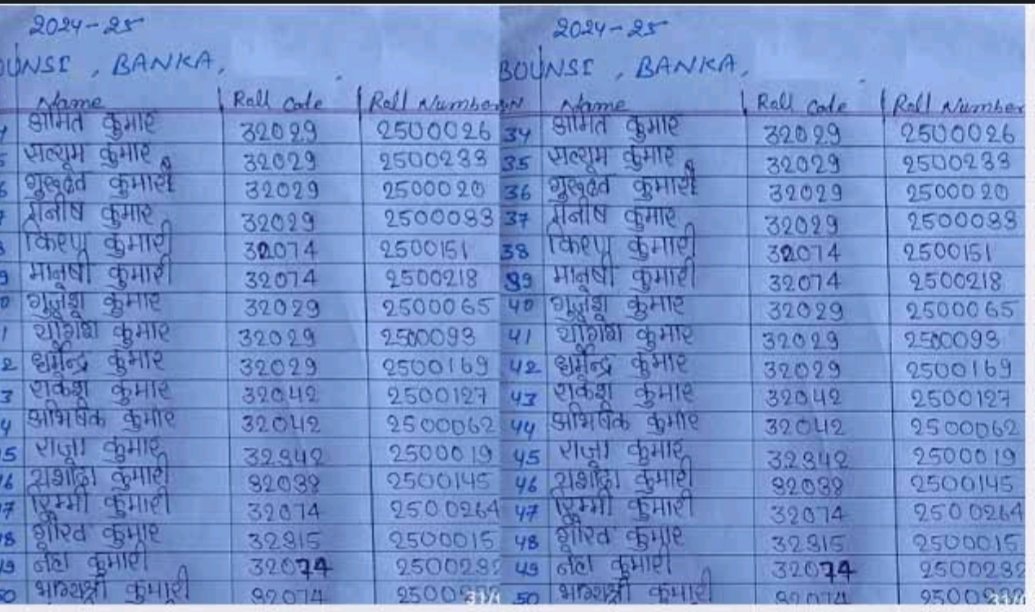 2024-25
BOUNSI, BANKA,
Name Roll Code Roll Number
अमित कुमार 32029 2500026
सत्यम कुमार 32029 2500233
कुमारी 32029 2500020
मनीष कुमार 32029 2500033
किरण कुमारी 32074 2500151
मानुषी कुमारी 32074 2500218
कुमार 32029 2500065
कुमार 32029 2500093
धर्मेन्द्र कुमार 32029 2500169
राकेश कुमार 32042 2500127
अभिषेक कुमार 32042 2500062
राजा कुमार 32342 2500019
यशोदा कुमारी 32038 2500145
कुमारी 32074 2500264
कुमार 32315 2500015
कुमारी 32074
भाग्यश्री कुमारी 32074
2024-25
BOUNSI, BANKA,
Name Roll Code Roll Number
34 अमित कुमार 32029 2500026
35 सत्यम कुमार 32029 2500233
36 कुमारी 32029 2500020
37 मनीष कुमार 32029 2500033
38 किरण कुमारी 32074 2500151
39 मानुषी कुमारी 32074 2500218
40 कुमार 32029 2500065
41 कुमार 32029 2500093
42 धर्मेन्द्र कुमार 32029 2500169
43 राकेश कुमार 32042 2500127
44 अभिषेक कुमार 32042 2500062
45 राजा कुमार 32342 2500019
46 यशोदा कुमारी 32038 2500145
47 कुमारी 32074 2500264
48 कुमार 32315 2500015
49 कुमारी 32074
50 भाग्यश्री कुमारी 32074